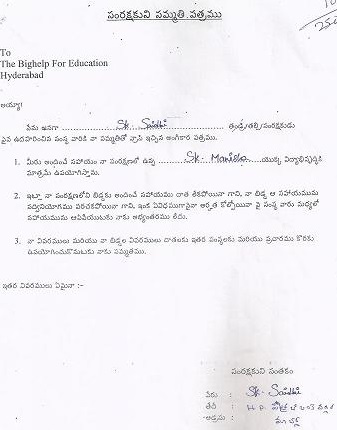 సంరక్షకుని సమ్మతి పత్రము
To
The Bighelp For Education
Hyderabad
అయ్యా!
పేరు Sk. Saidhi తండ్రి/తల్లి/సంరక్షకుడు
పైన ఉదహరించిన సంస్థ వారికి నా సమ్మతితో వ్రాసి ఇచ్చిన అంగీకార పత్రము.
1. మీరు అందించే సహాయం నా సంరక్షణలో ఉన్న Sk. Manisha యొక్క విద్యాభివృద్ధికి
మాత్రమే ఉపయోగిస్తాను.
2. ఇట్లా నా సంరక్షణలోని బిడ్డకు అందించే సహాయము దాత లేకపోయినా గాని, నా బిడ్డ ఆ సహాయమును
సద్వినియోగము పరచకపోయినా గాని, ఇంక ఏవిధముగానైనా అర్హత కోల్పోయినా పై సంస్థ వారు మధ్యలో
సహాయమును ఆపివేయుటకు నాకు అభ్యంతరము లేదు.
3. నా వివరములు మరియు నా బిడ్డల వివరములు దాతలకు ఇతర సంస్థలకు మరియు ప్రచారము కొరకు
ఉపయోగించుకొనుటకు నాకు సమ్మతము.
ఇతర వివరములు ఏమైనా :-
సంరక్షకుని సంతకం
పేరు : Sk. Saidhi
తేదీ :
అడ్రసు :